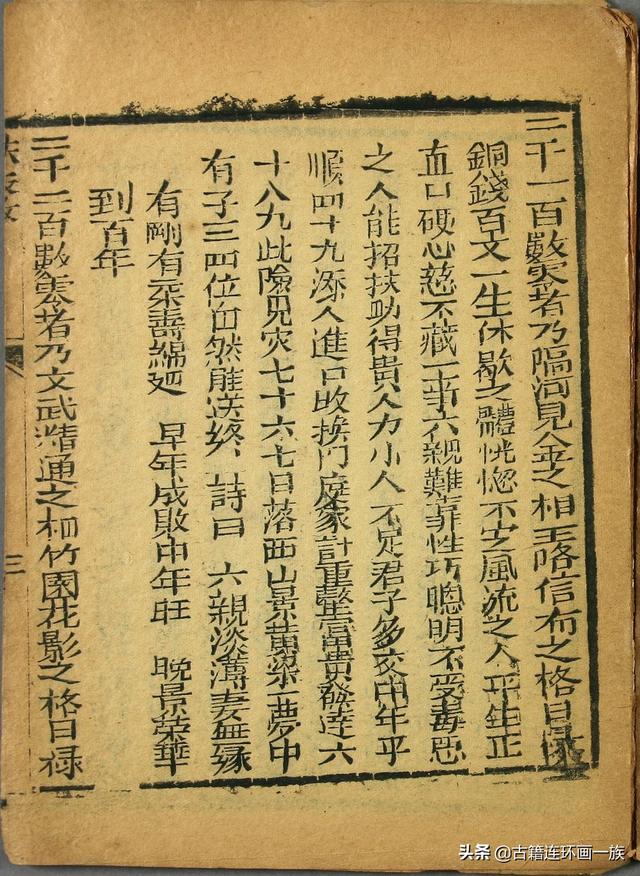 三千一百數零者乃隔河見金之相玉咯信布之格日
銅錢百文一生休歇之體恍惚不定風流之人平生正
直口硬心慈不藏一事六親難靠性巧聰明不受毒惡
之人能招扶助得貴人力小人不足君子多交中年平
順四十九添人進口改换門庭家計重整富貴發達六
十八九此險見灾七十六七日落西山景黃粱一夢中
有子三四位自然能送終 詩曰 六親淡薄妻無緣
有剛有柔壽綿延 早年成敗中年旺 晚景荣華
到百年
二千二百數零者乃文武精通之相竹園花影之格日禄
三
头条 @古籍连环画一族